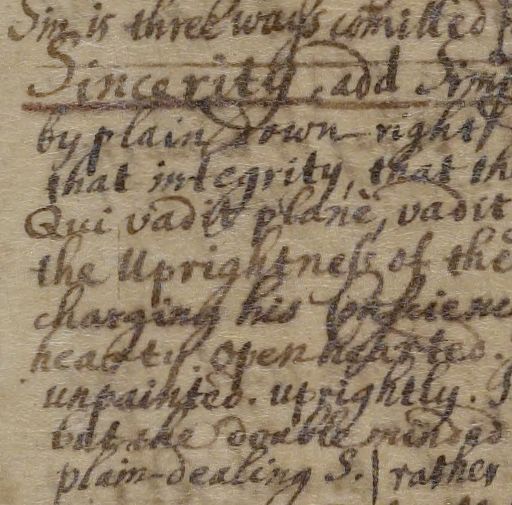 Sin is three ways com̄itted
Sincerity, add
by plain down-right
that integrity, that th
Qui vadit planè, vadit
the Uprightness of the
charging his Conscienc
hearty. open hearted.
unpainted. uprightly.
but the double minded
plain-dealing S. | rather